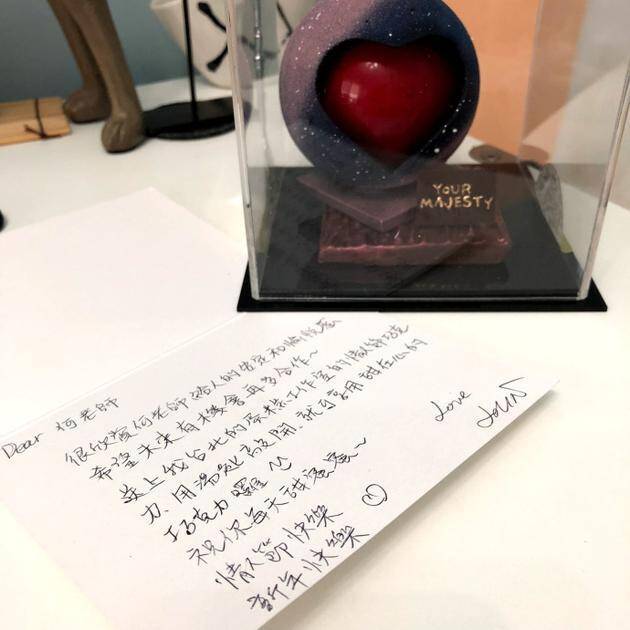 YOUR
MAJESTY
Dear 何老師
很欣賞何老師給人的安定和愉悅感
希望未來有機會再多合作~
送上我台北的工作室的情人節巧克
力.用湯匙敲開.就可享用甜在心的
巧克力囉
祝你每天甜蜜蜜~
情人節快樂
新年快樂
Love
JOHN